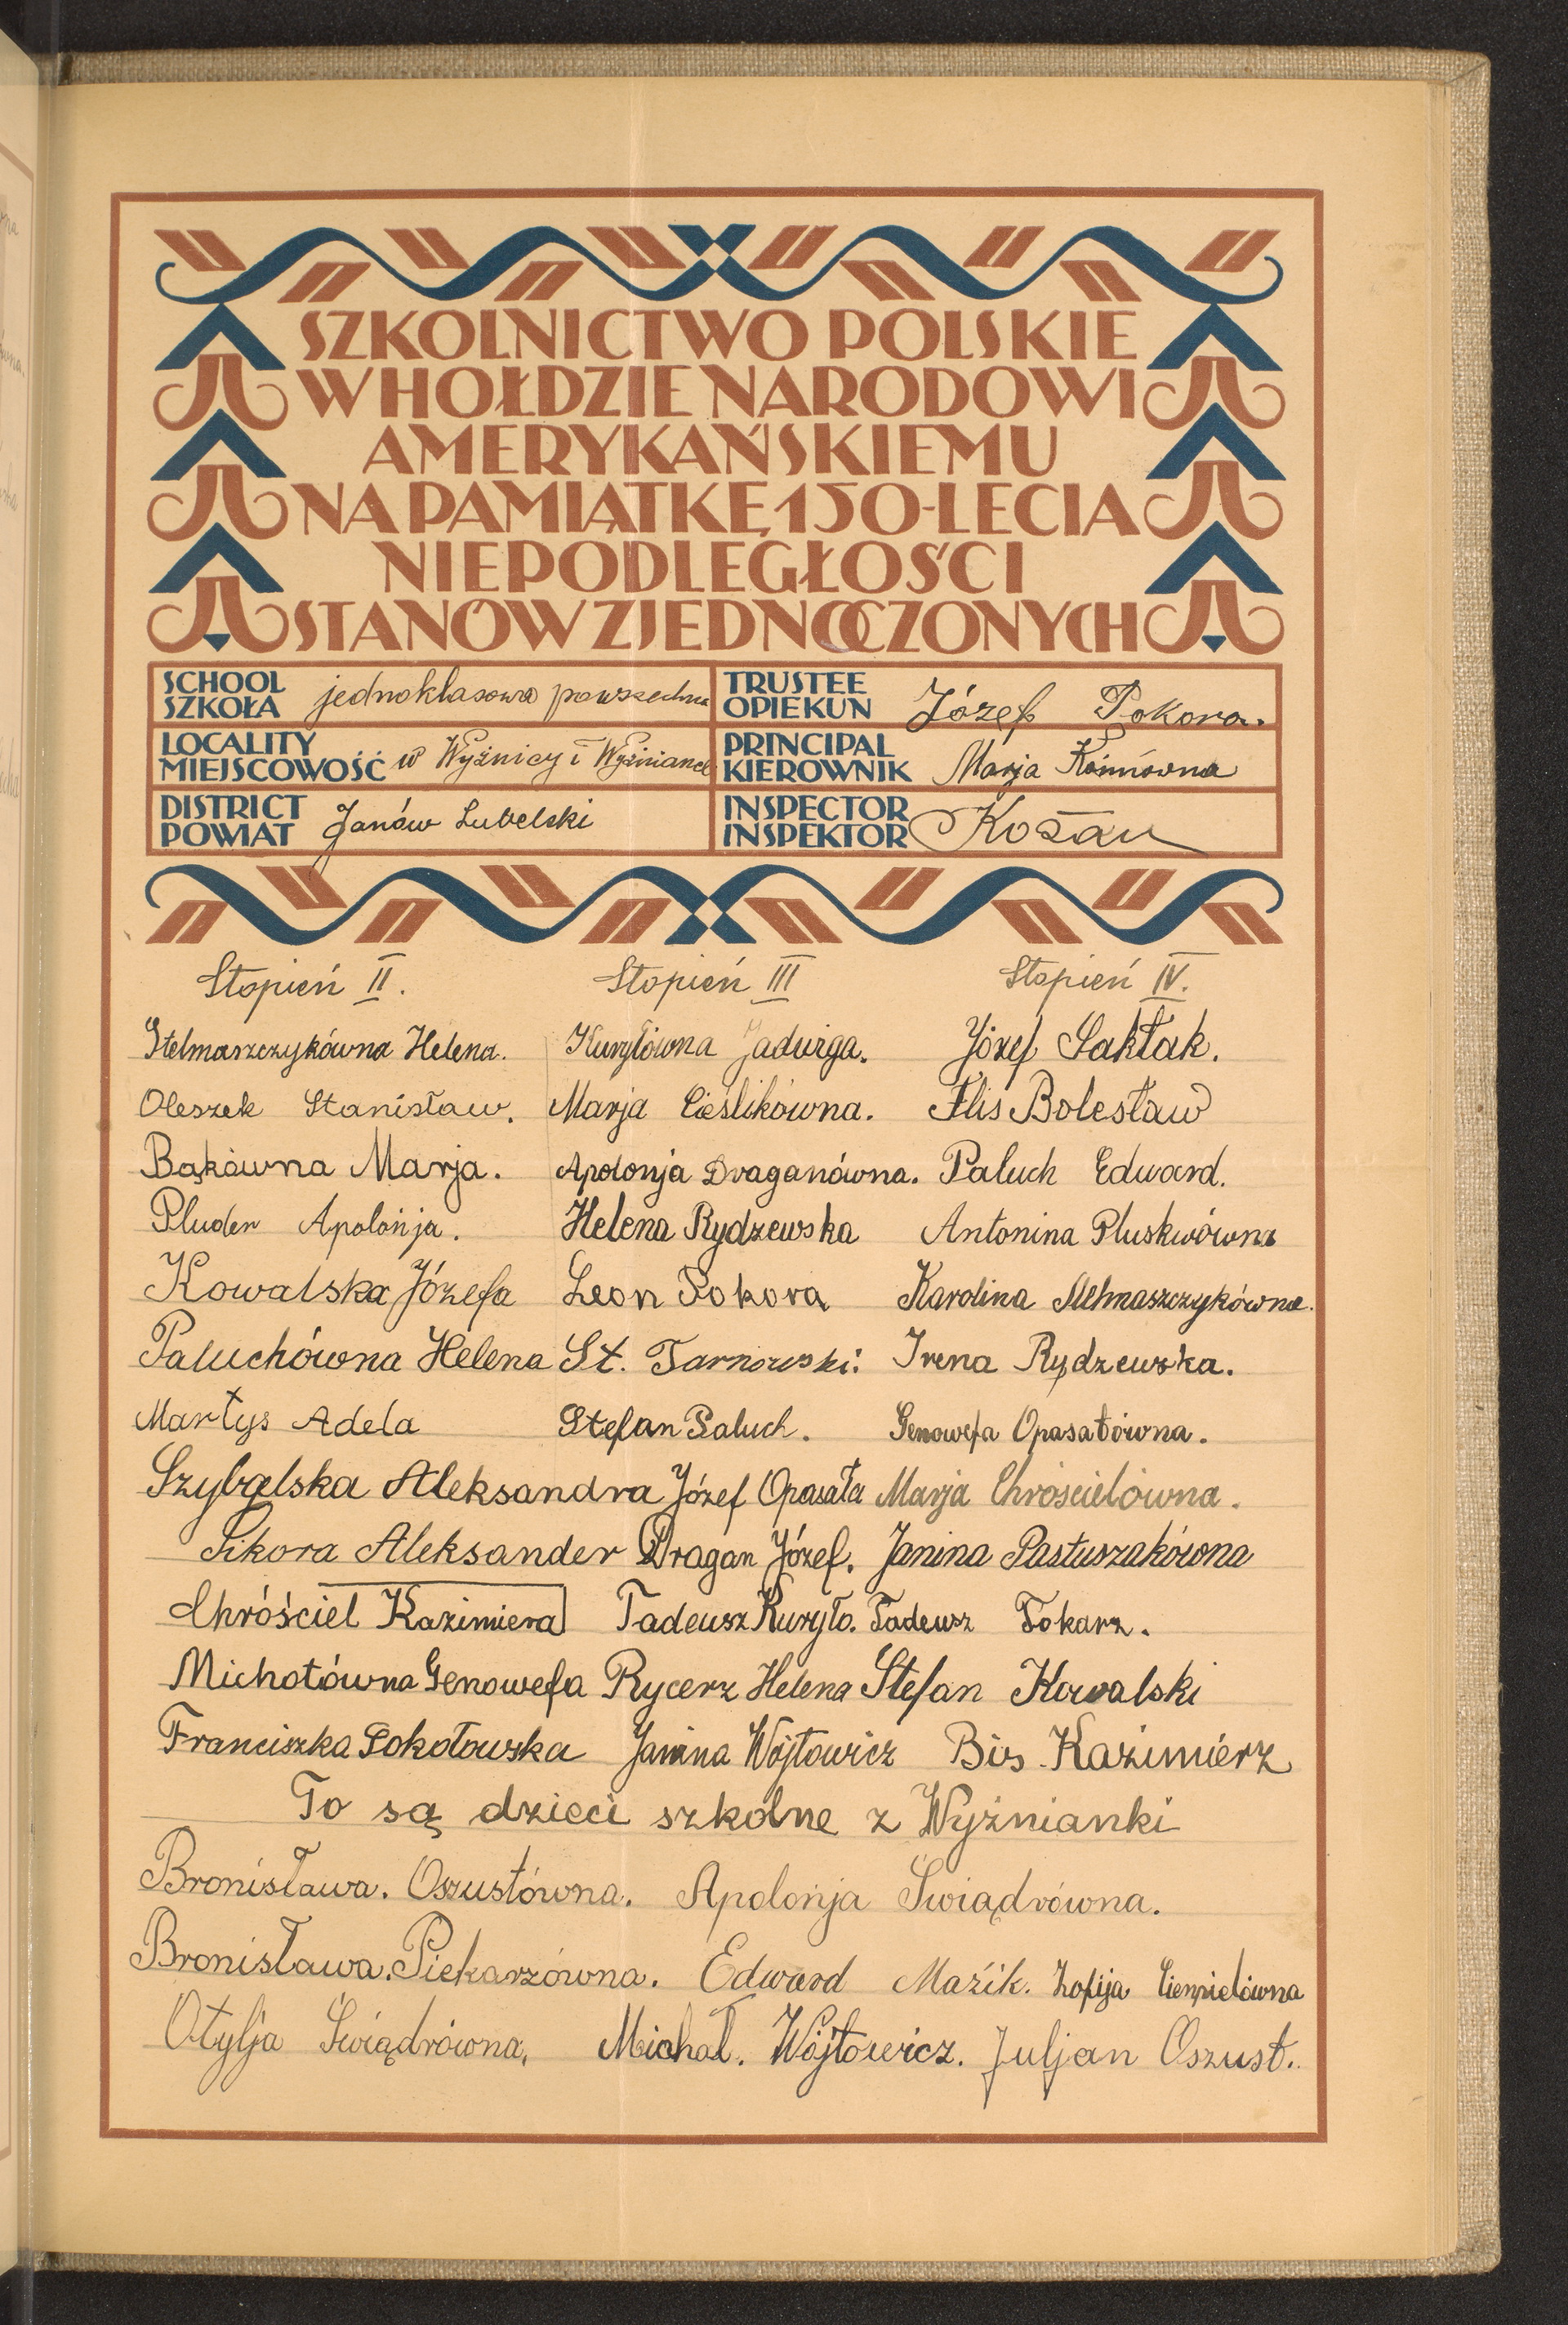 SZKOLNICTWO POLSKIE
W HOŁDZIE NARODOWI
AMERYKAŃSKIEMU
NA PAMIĄTKĘ 150-LECIA
NIEPODLEGŁOŚCI
STANÓW ZJEDNOCZONYCH
SCHOOL
SZKOŁA jednoklasowa powszechna
TRUSTEE
OPIEKUN Józef Pokora.
LOCALITY
MIEJSCOWOŚĆ w Wyźnicy i Wyźniance
PRINCIPAL
KIEROWNIK Marja
DISTRICT
POWIAT Janów Lubelski
INSPECTOR
INSPEKTOR
Stopień II. Stopień III Stopień IV.
Stelmaszczykówna Helena. Kuryłówna Jadwiga. Józef Saktak.
Oleszek Stanisław. Marja Cieślikówna. Flis Bolesław
Bąkówna Marja. Apolonja Draganówna. Paluch Edward.
Pluder Apolonja. Helena Rydzewska Antonina Pluskwówna
Kowalska Józefa Leon Pokora Karolina Stelmaszczykówna.
Paluchówna Helena St. Tarnowski. Irena Rydzewska.
Martys Adela Stefan Paluch. Genowefa Opasałówna.
Szybalska Aleksandra Józef Opasała Marja Chróścielówna.
Sikora Aleksander Dragan Józef. Janina Pastuszakówna
Chróściel Kazimiera Tadeusz Kuryło. Tadeusz Tokarz.
Michotówna Genowefa Rycerz Helena Stefan Kowalski
Franciszka Sokołowska Janina Wójtowicz Bis Kazimierz
To są dzieci szkolne z Wyźnianki
Bronisława. Oszustówna. Apolonja Świądrówna.
Bronisława. Piekarzówna. Edward Mazik. Zofija Cienpielówna
Otylja Świądrówna, Michał. Wójtowicz. Juljan Oszust.